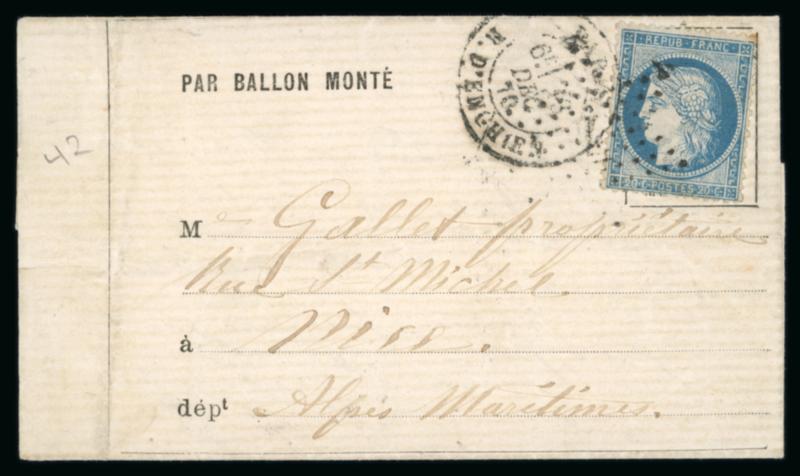 REPUB. FRANC.
20 C. POSTES 20 C.
PARIS
R. D'ENGHIEN
DEC.
70
PAR BALLON MONTÉ
42
Me Gallet propriétaire
Rue St Michel
à Nice.
dépt Alpes Maritimes.